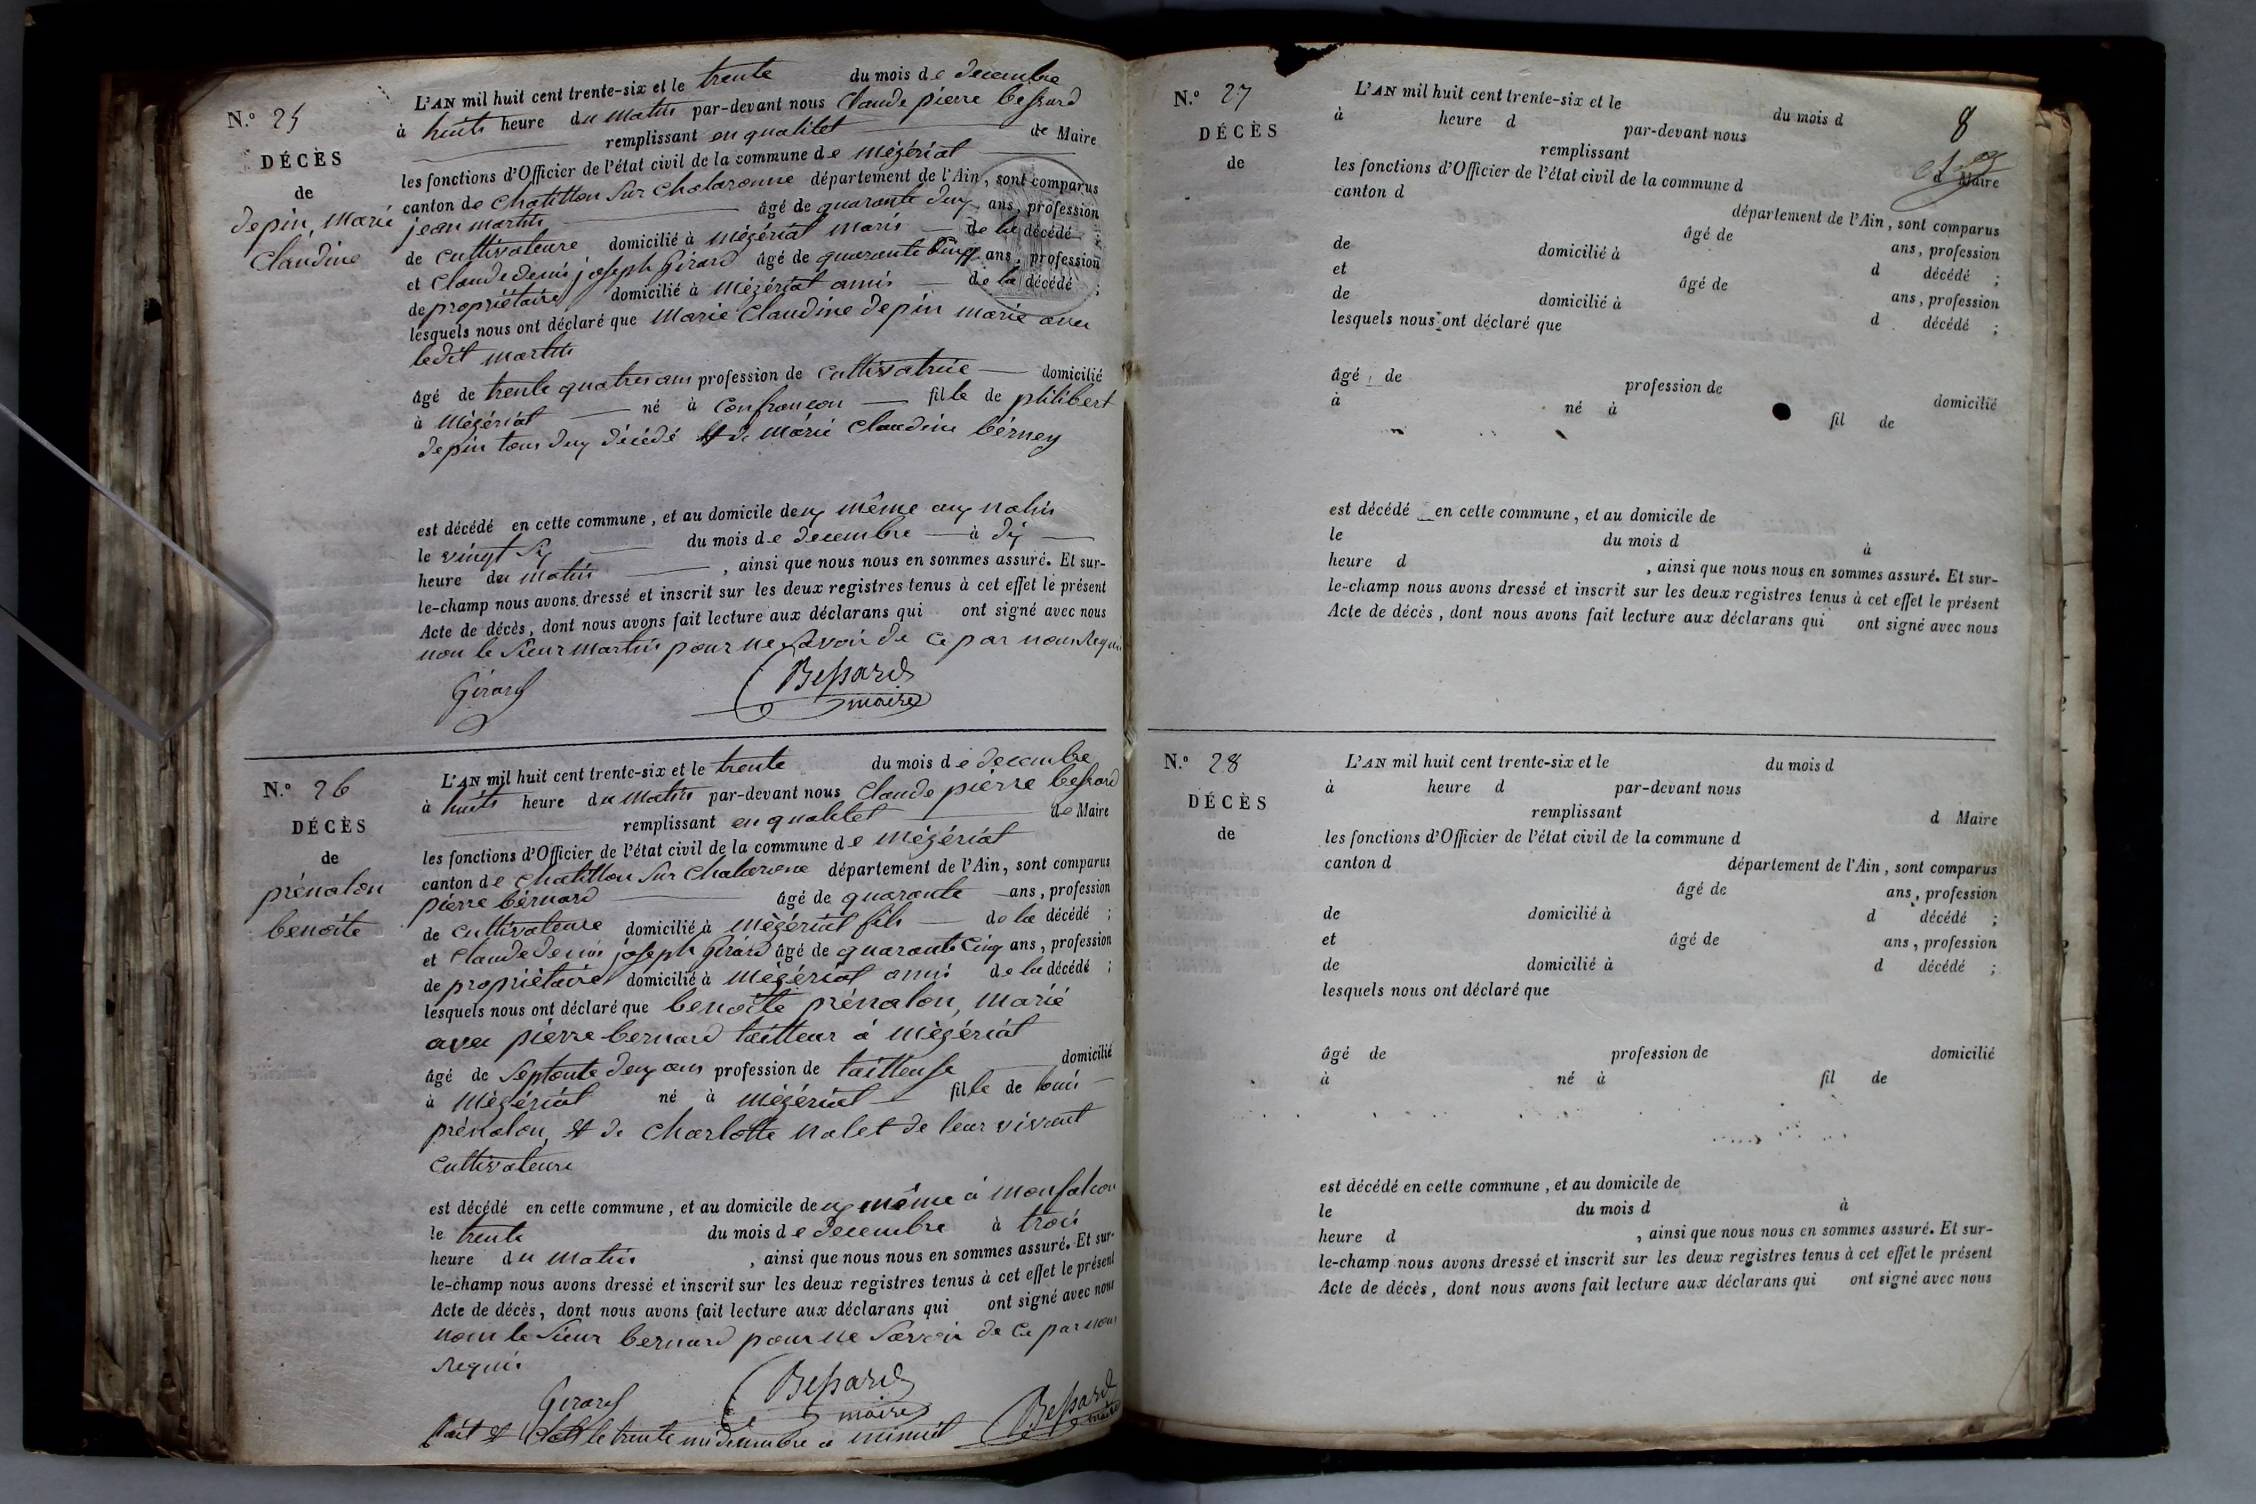 N.° 25
DÉCÈS
de
depin, marie
Claudine
L'AN mil huit cent trente-six et le trente du mois de decembre
à huits heure du matin par-devant nous Claude pierre bessard
remplissant en qualitet de Maire
les fonctions d'Officier de l'état civil de la commune de mézériat
canton de chatillon sur chalaronne département de l'Ain, sont comparus
jean martin âgé de quarante deux ans, profession
de cultivateure domicilié à mézériat maris de la décédé ;
et Claude denis joseph Girard âgé de quarante cinq ans, profession
de propriétaire domicilié à mézériat amis de la décédé ;
lesquels nous ont déclaré que marie Claudine depin marié avec
ledit martin
âgé de trente quatres ans profession de cultivatrice domicilié
à mézériat né à confrançon fille de philibert
depin tous deux décédé et de marie Claudine berney
est décédé en cette commune, et au domicile deux même aux
le vingt six du mois de decembre à dix
heure du matin , ainsi que nous nous en sommes assuré. Et sur-
le-champ nous avons dressé et inscrit sur les deux registres tenus à cet effet le présent
Acte de décès, dont nous avons fait lecture aux déclarans qui ont signé avec nous
non le sieur martin pour ne savoir de ce par nous requis
Girard Bessard
maire
N.° 26
DÉCÈS
de
prénalon
benoite
L'AN mil huit cent trente-six et le trente du mois de decembre
à huits heure du matin par-devant nous Claude pierre bessard
remplissant en qualitet de Maire
les fonctions d'Officier de l'état civil de la commune de mézériat
canton de chatillon sur chalarone département de l'Ain, sont comparus
pierre bernard âgé de quarante ans, profession
de cultivateure domicilié à mézériat fils de la décédé ;
et Claude denis joseph Girard âgé de quarante cinq ans, profession
de propriétaire domicilié à mézériat amis de la décédé ;
lesquels nous ont déclaré que benoite prénalon, marié
avec pierre bernard tailleur à mézériat
âgé de septante deux ans profession de tailleuse domicilié
à mézériat né à mézériat fille de louis
prénalon, et de charlotte nalet de leur vivant
cultivateure
est décédé en cette commune, et au domicile deux même à monfalcon
le trente du mois de decembre à trois
heure du matin , ainsi que nous nous en sommes assuré. Et sur-
le-champ nous avons dressé et inscrit sur les deux registres tenus à cet effet le présent
Acte de décès, dont nous avons fait lecture aux déclarans qui ont signé avec nous
nom le sieur bernard pour ne savoir de ce par nous
requis
Girard Bessard
maire
fait et clos le trente un decembre à minuit Bessard
maire
N.° 27
DÉCÈS
de
8
L'AN mil huit cent trente-six et le du mois d
à heure d par-devant nous
remplissant d Maire
les fonctions d'Officier de l'état civil de la commune d
canton d département de l'Ain, sont comparus
âgé de ans, profession
de domicilié à d décédé ;
et âgé de ans, profession
de domicilié à d décédé ;
lesquels nous ont déclaré que
âgé de profession de domicilié
à né à fil de
est décédé en cette commune, et au domicile de
le du mois d à
heure d , ainsi que nous nous en sommes assuré. Et sur-
le-champ nous avons dressé et inscrit sur les deux registres tenus à cet effet le présent
Acte de décès, dont nous avons fait lecture aux déclarans qui ont signé avec nous
N.° 28
DÉCÈS
de
L'AN mil huit cent trente-six et le du mois d
à heure d par-devant nous
remplissant d Maire
les fonctions d'Officier de l'état civil de la commune d
canton d département de l'Ain, sont comparus
âgé de ans, profession
de domicilié à d décédé ;
et âgé de ans, profession
de domicilié à d décédé ;
lesquels nous ont déclaré que
âgé de profession de domicilié
à né à fil de
est décédé en cette commune, et au domicile de
le du mois d à
heure d , ainsi que nous nous en sommes assuré. Et sur-
le-champ nous avons dressé et inscrit sur les deux registres tenus à cet effet le présent
Acte de décès, dont nous avons fait lecture aux déclarans qui ont signé avec nous